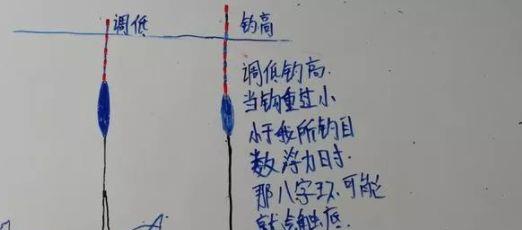 调低
钓高
调低钓高.
当钩重过小
小于我所钓目
数浮力时.
那八字环可能
就会触底.